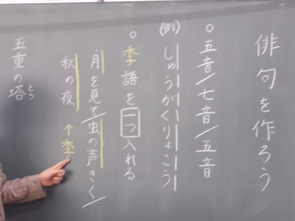 俳句を作ろう
○五音/七音/五音
(例)しゅうがくりょこう
○季語を一つ入れる
月を見て/虫の声きく/
秋の夜 ↑季
五重の塔とう